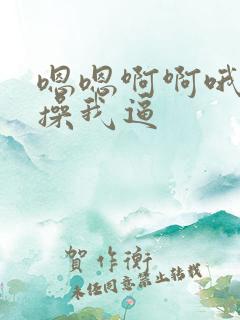 嗯嗯啊啊哦
操我逼
賀作衡
未经同意禁止转载